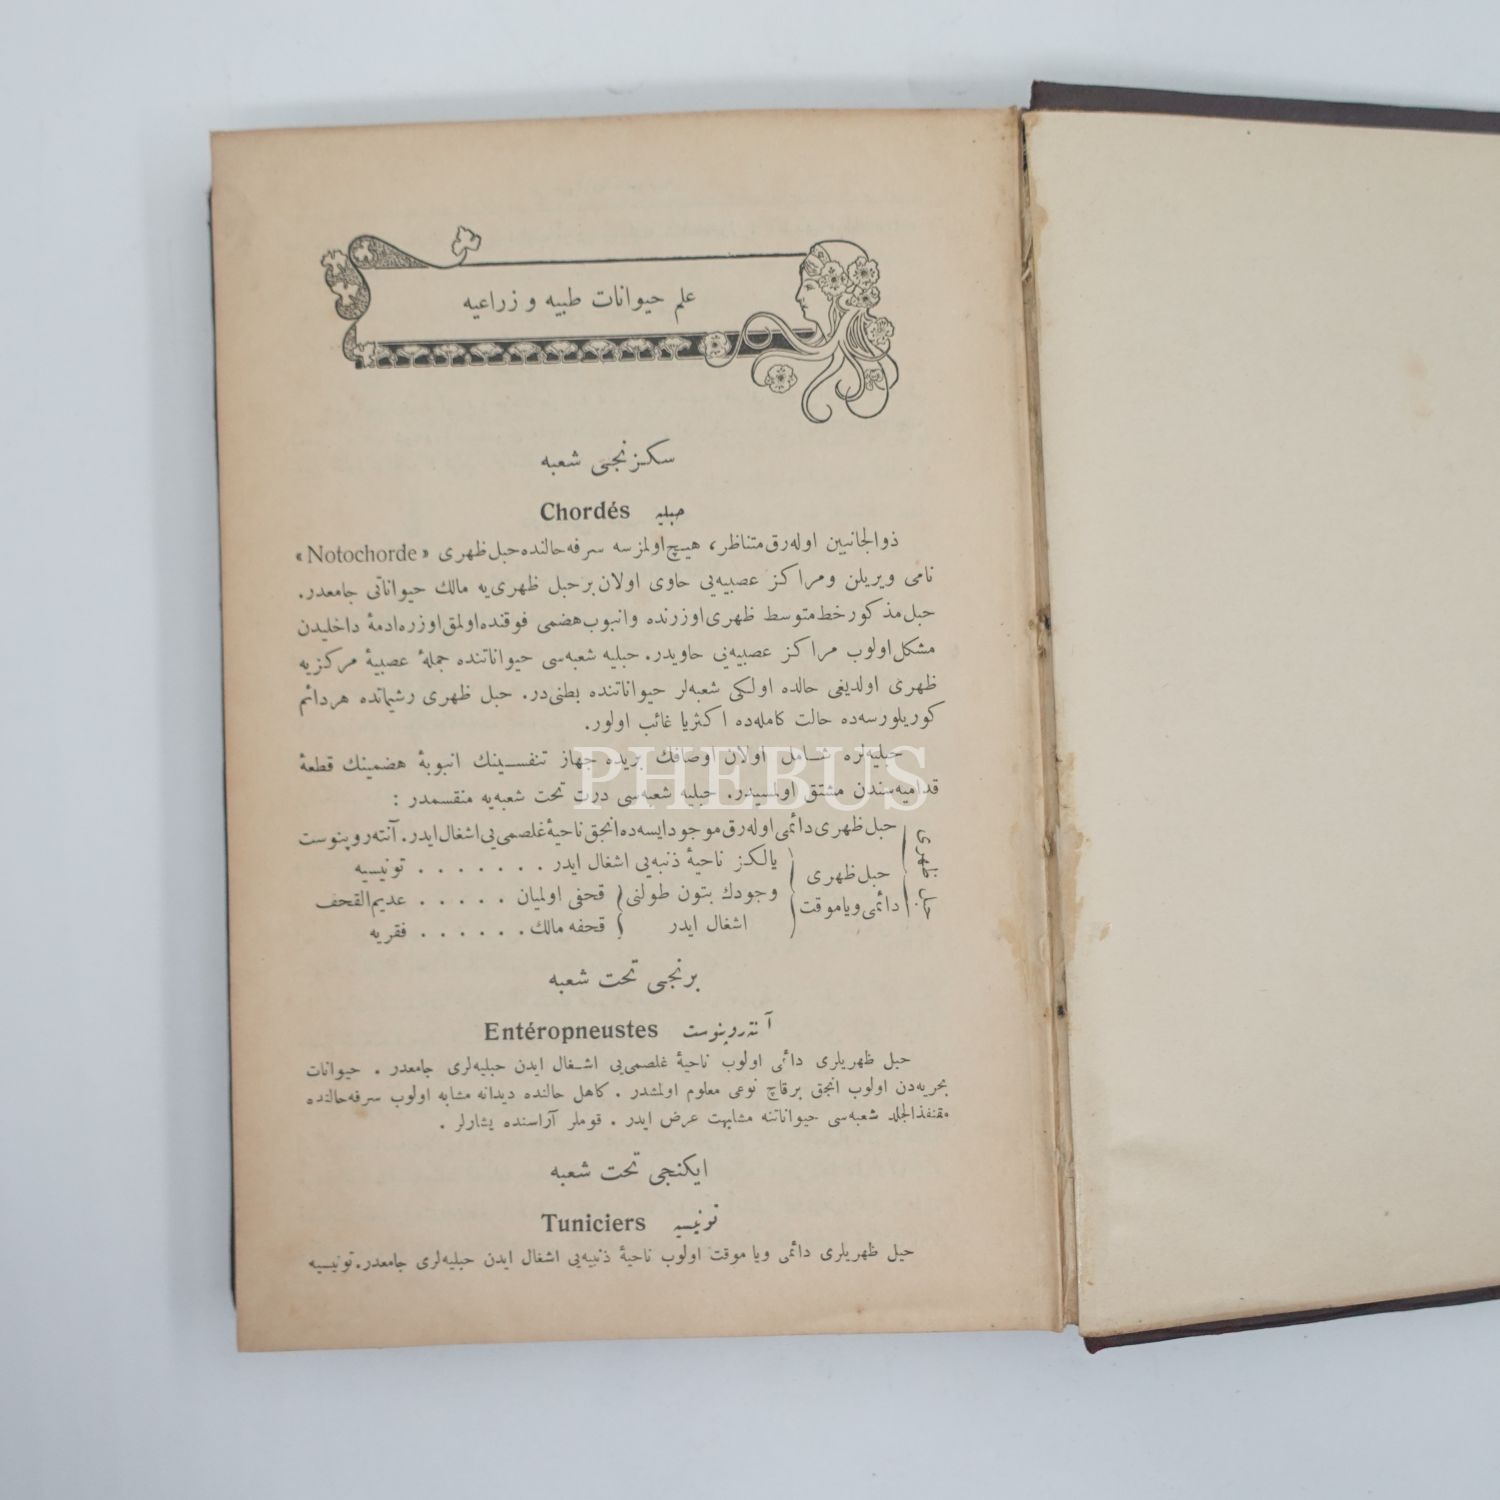 علم حیوانات طبیه و زراعیه
سکزنجی شعبه
حبلیه Chordés
ذوالجانبین اوله‌رق متناظر، هیچ اولمزسه سرفه حالنده حبل ظهری «Notochorde»
نامی ویریلن ومراکز عصبیه‌یی حاوی اولان بر حبل ظهری‌یه مالك حیواناتی جامعدر.
حبل مذکور خط متوسط ظهری اوزرنده وانبوب هضمی فوقنده اولمق اوزره ادمهٔ داخلیدن
مشکل اولوب مراکز عصبیه‌یی حاویدر. حبلیه شعبه‌سی حیواناتنده جملهٔ عصبیهٔ مرکزیه
ظهری اولدیغی حالده اولکی شعبه‌لر حیواناتنده بطنی‌در. حبل ظهری رشیماتده هردائم
کوریلورسه‌ده حالت کامله‌ده اکثریا غائب اولور.
حبلیه‌لره شامل اولان اوصافك بریده جهاز تنفسینك انبوبهٔ هضمینك قطعهٔ
قدامیه‌سندن مشتق اولمسیدر. حبلیه شعبه‌سی درت تحت شعبه‌یه منقسمدر :
حبل ظهری
حبل ظهری دائمی اوله‌رق موجود ایسه‌ده انجق ناحیهٔ غلصمی‌یی اشغال ایدر. آنته‌روپنوست
حبل ظهری دائمی ویا موقت
یالکز ناحیهٔ ذنبه‌یی اشغال ایدر . . . . . . . تونیسیه
وجودك بتون طولنی اشغال ایدر
قحفی اولمیان . . . . . عدیم‌القحف
قحفه مالك . . . . . . فقریه
برنجی تحت شعبه
آنته‌روپنوست Entéropneustes
حبل ظهریلری دائمی اولوب ناحیهٔ غلصمی‌یی اشغال ایدن حبلیه‌لری جامعدر . حیوانات
بحریه‌دن اولوب انجق برقاچ نوعی معلوم اولمشدر . کاهل حالنده دیدانه مشابه اولوب سرفه حالنده
مقنفذالجلد شعبه‌سی حیواناتنه مشابهت عرض ایدر . قوملر آراسنده یشارلر .
ایکنجی تحت شعبه
تونیسیه Tuniciers
حبل ظهریلری دائمی ویا موقت اولوب ناحیهٔ ذنبیه‌یی اشغال ایدن حبلیه‌لری جامعدر. تونیسیه
PHEBUS